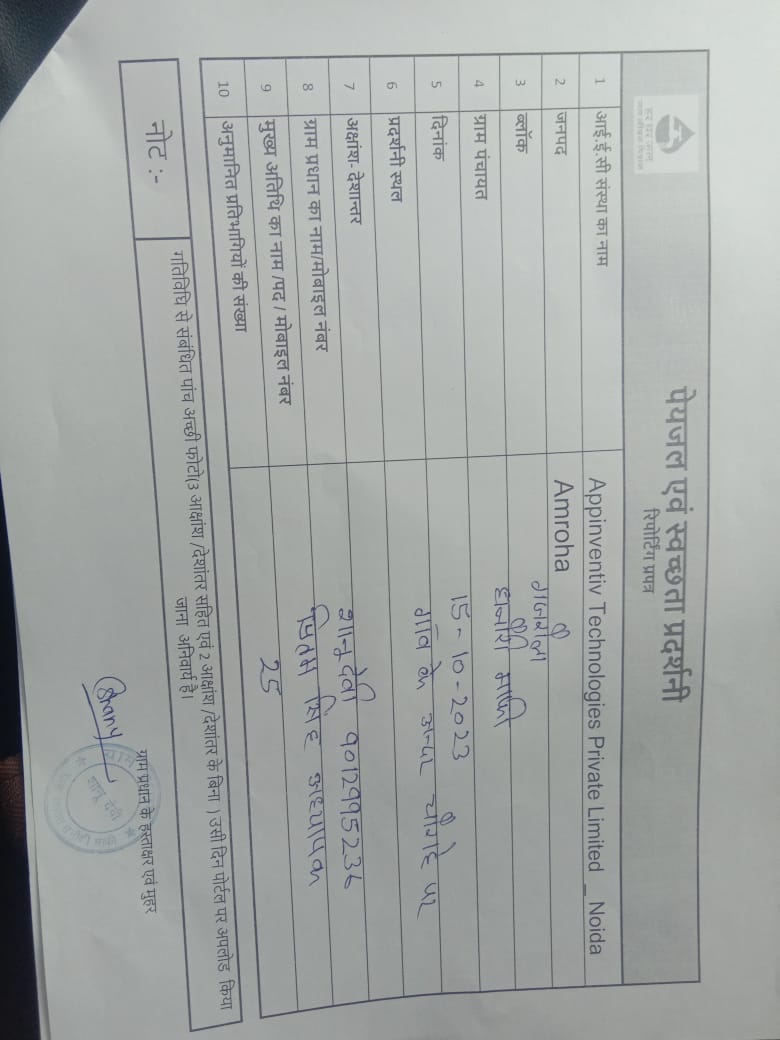 हर घर जल
जल जीवन मिशन
पेयजल एवं स्वच्छता प्रदर्शनी
रिपोर्टिंग प्रपत्र
1 आई.ई.सी संस्था का नाम Appinventiv Technologies Private Limited _ Noida
2 जनपद Amroha
3 ब्लॉक गजरौला
4 ग्राम पंचायत
5 दिनांक 15-10-2023
6 प्रदर्शनी स्थल गाँव के अन्दर चौराहे पर
7 अक्षांश- देशान्तर
8 ग्राम प्रधान का नाम/मोबाइल नंबर शानु देवी 9012995236
9 मुख्य अतिथि का नाम /पद / मोबाइल नंबर सिंह अध्यापक
10 अनुमानित प्रतिभागियों की संख्या 25
नोट :-
गतिविधि से संबंधित पांच अच्छी फोटो(3 आक्षांश /देशांतर सहित एवं 2 आक्षांश /देशांतर के बिना ) उसी दिन पोर्टल पर अपलोड किया
जाना अनिवार्य है।
ग्राम प्रधान के हस्ताक्षर एवं मुहर
शानू देवी